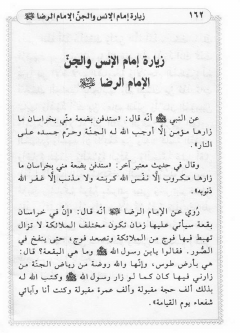 ١٦٢ زيارة إمام الإنس والجنّ الإمام الرضا
زيارة إمام الإنس والجنّ
الإمام الرضا
عن النبي أنّه قال: «ستدفن بضعة مني بخراسان ما
زارها مؤمن إلّا أوجب الله له الجنّة وحرّم جسده على
النار».
وقال في حديث معتبر آخر: «ستدفن بضعة منّي بخراسان ما
زارها مكروب إلّا نفّس الله كربته ولا مذنب إلّا غفر الله
ذنوبه».
رُوي عن الإمام الرضا أنّه قال: «إنّ في خراسان
بقعة سيأتي عليها زمان تكون مختلف الملائكة لا تزال
تهبط فيها فوج من الملائكة وتصعد فوج، حتى ينفخ في
الصّور. فقالوا يابن رسول الله وما هي البقعة؟ قال:
هي بأرض طوس، وإنّها والله روضة من رياض الجنّة من
زارني فيها كان كما لو زار رسول الله وكتب الله له
بذلك ألف حجة مقبولة وألف عمرة مقبولة وكنت أنا وآبائي
شفعاء يوم القيامة».